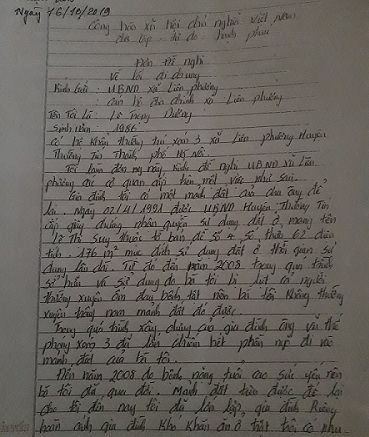 Ngày 16/10/2019
Cộng hòa xã hội chủ nghĩa Việt Nam
Độc lập - tự do - hạnh phúc
Đơn đề nghị
Kính Gửi: UBND xã Liên phương
: cán bộ địa chính xã Liên phương
Tên Tôi Là: Lê Trọng Dương
Sinh năm 1986
có hộ khẩu thường trú xóm 3 xã Liên phương Huyện
Thường Tín Thành phố Hà Nội.
Tôi làm đơn này kính đề nghị UBND xã Liên
phương các cơ quan cấp trên một việc như sau.
Gia đình tôi có một mảnh đất của cha ông để
lại. Ngày 02/4/1991 được UBND Huyện Thường Tín
cấp giấy chứng nhận quyền sử dụng đất ở mang tên
Lê Thị Suy thuộc tờ bản đồ số 4 số thửa 62 diện
tích 176 m² mục đích sử dụng đất ở thời gian sử
dụng lâu dài. Từ đó đến năm 2003 trong quá trình
sở hữu và sử dụng do bố tôi bị người
thường xuyên ốm đau bệnh tật nên bố tôi không thường
xuyên trông nom mảnh đất đó được.
Trong quá trình xây dựng của gia đình ông vũ thế
phong xóm 3 đã lấn chiếm hết phần ngõ đi vào
mảnh đất của bố tôi.
Đến năm 2008 do bệnh nặng tuổi cao sức yếu nên
bố tôi đã qua đời. Mảnh đất trên được để lại
cho tôi đến nay tôi đã gia đình Riêng
hoàn cảnh gia đình khó khăn ăn ở